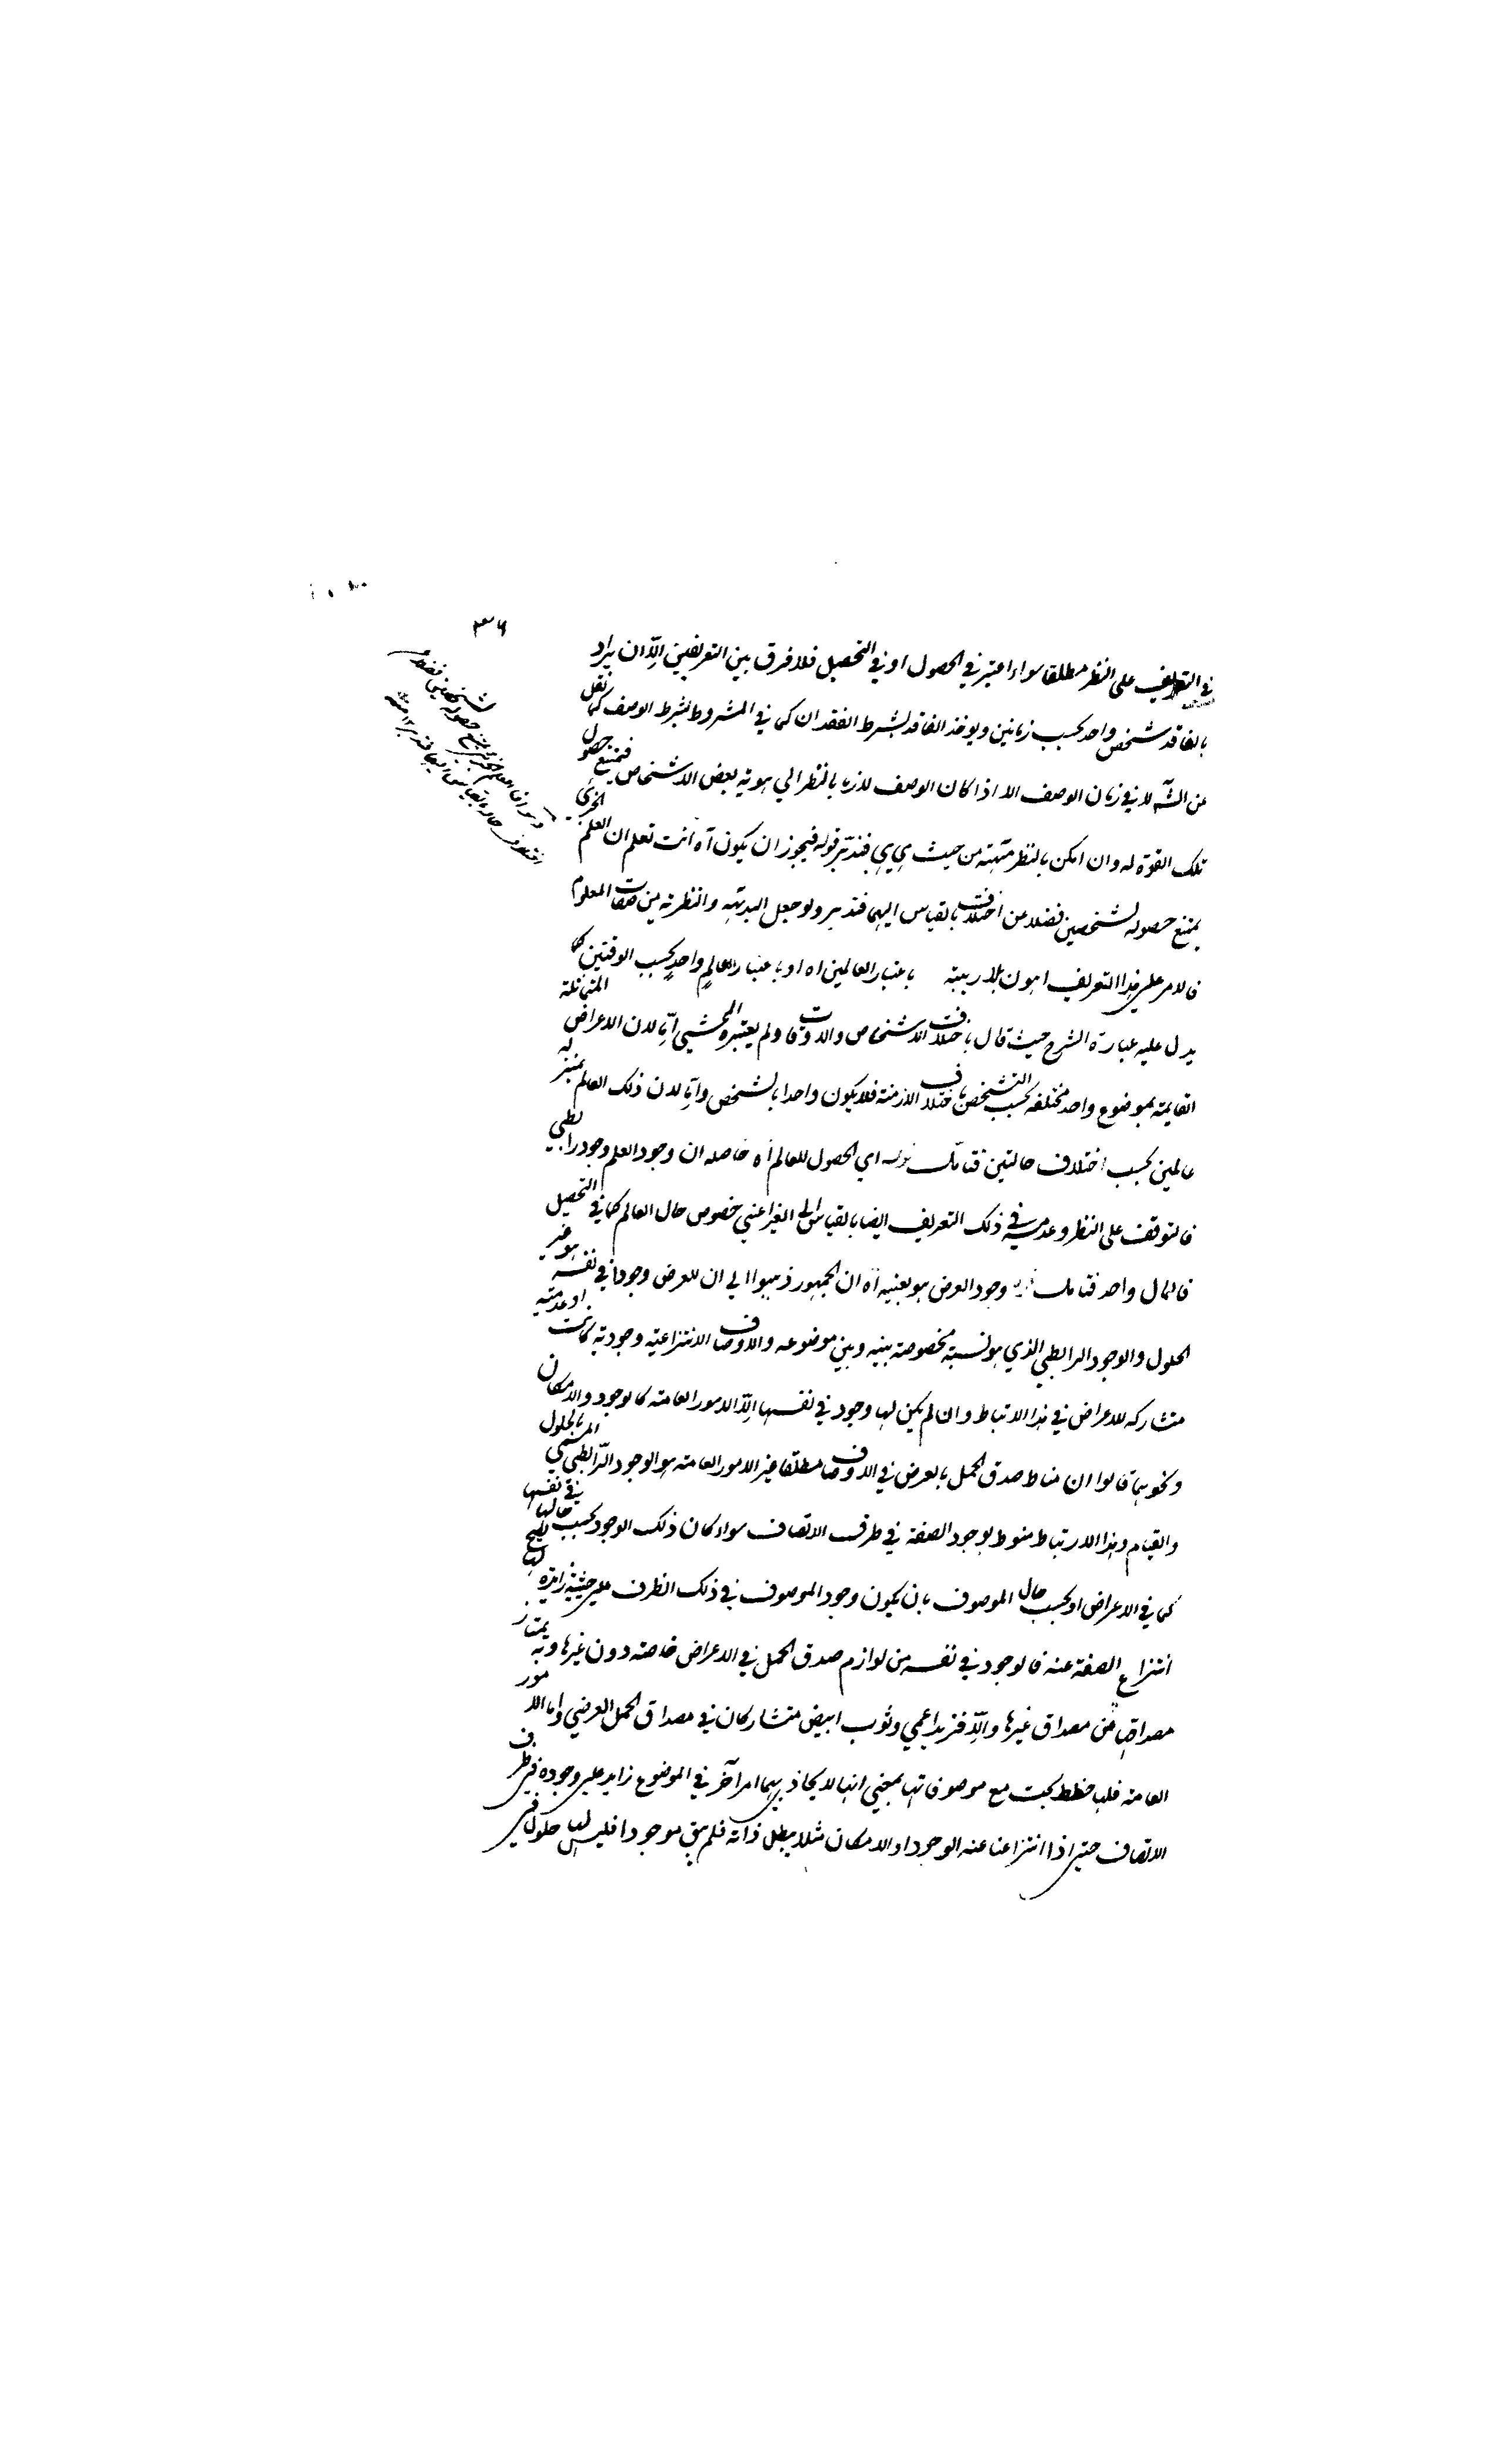 ٣٦
في التعريف على النظر مطلقا سواء اعتبر في الحصول او في التحصيل فلا فرق بين التعريفين الا ان يراد
بالفاقد شخص واحد بحسب زمانين ويوخذ الفاقد بشرط الفقدان كما في المشروط بشرط الوصف كما نقل
عن الشـ لا في زمان الوصف الا اذا كان الوصف لازما بالنظر الي هوية بعض الاشخاص فيمتنع حصول
تلك القوة له وان امكن بالنظر مهيته من حيث هي هي فتدبر قوله فيجوز ان يكون آه انت تعلم ان العلم الجزئي
يمتنع حصوله لشخصين فضلا عن اختلافه بالقياس اليهما فتدبر ولو جعل البديهية والنظرية من صفات المعلوم
فالامر على هذا التعريف اهون بلا ريبة باعتبار العالمين اه او باعتبار العالم واحد بحسب الوقتين كما
يدل عليه عبارة الشرح حيث قال باختلاف الاشخاص والاوقات ولم يعتبره المحشي اما لان الاعراض المتماثلة
القايمة بموضوع واحد مختلفة بحسب التشخص باختلاف الازمنة فلا يكون واحدا بالشخص واما لان ذلك العالم بمنزلة
عالمين بحسب اختلاف حالتين فتامل قوله اي الحصول للعالم آه حاصله ان وجود العلم وجود رابطي
فالتوقف على النظر وعدمه في ذلك التعريف ايضا بالقياس الى الغير اعني خصوص حال العالم كما في التحصيل
فالمال واحد فتامل قوله وجود العرض هو بعينيه آه ان الجمهور ذهبوا الي ان للعرض وجودا في نفسه هو غير
الحلول والوجود الرابطي الذي هو نسبة مخصوصة بينه وبين موضوعه والاوصاف الانتزاعية وجودية كانت او عدمية
متشاركه للاعراض في هذا الارتباط وان لم يكن لها وجود في نفسها الا الامور العامة كالوجود والامكان
ونحوهما قالوا ان مناط صدق الحمل بالعرض في الاوصاف مطلقا غير الامور العامة هو الوجود الرابطي المسمى بالحلول
والقيام وهذا الارتباط منوط بوجود الصفة في ظرف الاتصاف سواء كان ذلك الوجود بحسب حالها في نفسها
كما في الاعراض او بحسب حال الموصوف بان يكون وجود الموصوف في ذلك الظرف على حيثية زايدة بها يصح
انتزاع الصفة عنه فالوجود في نفسه من لوازم صدق الحمل في الاعراض خاصة دون غيرها وبه يمتاز
مصداقها من مصداق غيرها والا فزيد اعمي وثوب ابيض متشاركان في مصداق الحمل العرضي واما الامور
العامة فلها خلط بحت مع موصوفاتها بمعني انها لا يحاذ بها امرا آخر في الموضوع زايد على وجوده في ظرف
الاتصاف حتى اذا انتزعنا عنه الوجود او الامكان مثلا يبطل ذاته فلم يبق موجودا فليس لها حلول في